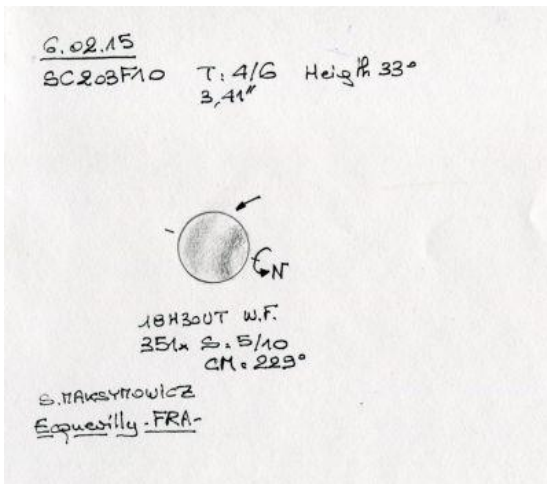 6.02.15
SC203F10 T: 4/6 Heigth 33°
3,41"
N
18H30UT W.F.
351x S: 5/10
CM: 229°
S. MAKSYMOWICZ
Ecquevilly - FRA-